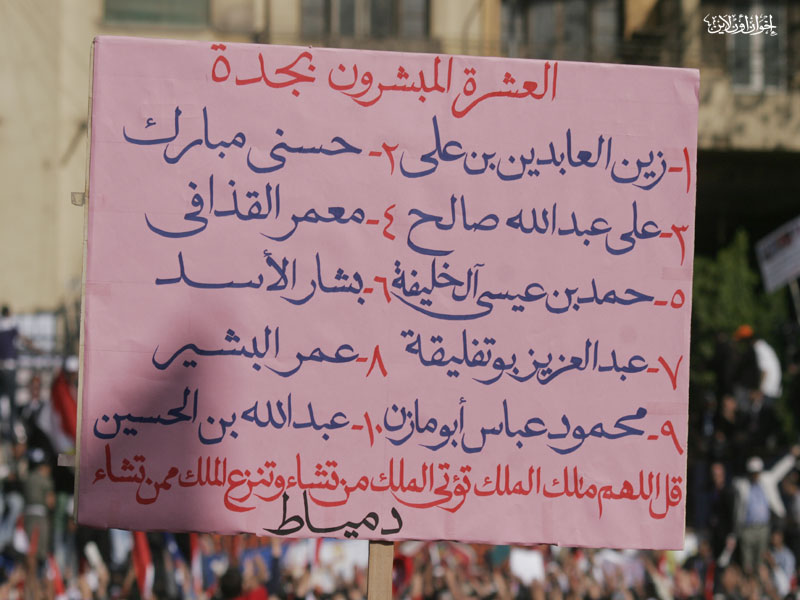 إخوان أون لاين
العشرة المبشرون بجدة
١- زين العابدين بن على ٢- حسنى مبارك
٣- على عبد الله صالح ٤- معمر القذافى
٥- حمد بن عيسى آل خليفة ٦- بشار الأسد
٧- عبد العزيز بوتفليقة ٨- عمر البشير
٩- محمود عباس أبو مازن ١٠- عبد الله بن الحسين
قل اللهم مالك الملك تؤتى الملك من تشاء وتنزع الملك ممن تشاء
دمياط